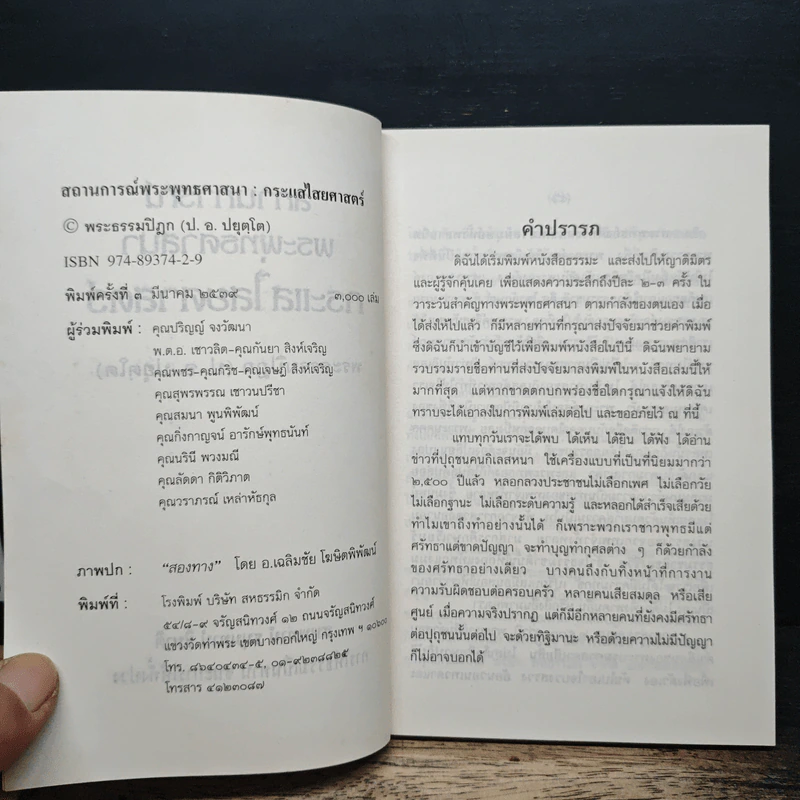 สถานการณ์พระพุทธศาสนา : กระแสไสยศาสตร์
© พระธรรมปิฎก (ป. อ. ปยุตฺโต)
ISBN 974-89374-2-9
พิมพ์ครั้งที่ ๓ มีนาคม ๒๕๓๙ ๓,๐๐๐ เล่ม
ผู้ร่วมพิมพ์ : คุณปริญญ์ จงวัฒนา
พ.ต.อ. เชาวลิต-คุณกันยา สิงห์เจริญ
คุณพชร-คุณกริช-คุณเจษฎ์ สิงห์เจริญ
คุณสุพรพรรณ เชาวนปรีชา
คุณสมนา พูนพิพัฒน์
คุณกิ่งกาญจน์ อารักษ์พุทธนันท์
คุณนรินี พวงมณี
คุณลัดดา กิติวิภาต
คุณวราภรณ์ เหล่าหัธกุล
ภาพปก : "สองทาง" โดย อ.เฉลิมชัย โฆษิตพิพัฒน์
พิมพ์ที่ : โรงพิมพ์ บริษัท สหธรรมิก จำกัด
๕๔/๘-๙ จรัญสนิทวงศ์ ๑๒ ถนนจรัญสนิทวงศ์
แขวงวัดท่าพระ เขตบางกอกใหญ่ กรุงเทพ ฯ ๑๐๖๐๐
โทร. ๘๖๔๐๔๓๔-๕, ๐๑-๙๒๓๘๘๒๕
โทรสาร ๔๑๒๓๐๘๗
คำปรารภ
ดิฉันได้เริ่มพิมพ์หนังสือธรรมะ และส่งไปให้ญาติมิตร
และผู้รู้จักคุ้นเคย เพื่อแสดงความระลึกถึงปีละ ๒-๓ ครั้ง ใน
วาระวันสำคัญทางพระพุทธศาสนา ตามกำลังของตนเอง เมื่อ
ได้ส่งให้ไปแล้ว ก็มีหลายท่านที่กรุณาส่งปัจจัยมาช่วยค่าพิมพ์
ซึ่งดิฉันก็นำเข้าบัญชีไว้เพื่อพิมพ์หนังสือในปีนี้ ดิฉันพยายาม
รวบรวมรายชื่อท่านที่ส่งปัจจัยมาลงพิมพ์ในหนังสือเล่มนี้ให้
มากที่สุด แต่หากขาดตกบกพร่องชื่อใดกรุณาแจ้งให้ดิฉัน
ทราบจะได้เอาลงในการพิมพ์เล่มต่อไป และขออภัยไว้ ณ ที่นี้
แทบทุกวันเราจะได้พบ ได้เห็น ได้ยิน ได้ฟัง ได้อ่าน
ข่าวที่ปุถุชนคนกิเลสหนา ใช้เครื่องแบบที่เป็นที่นิยมมากว่า
๒,๕๐๐ ปีแล้ว หลอกลวงประชาชนไม่เลือกเพศ ไม่เลือกวัย
ไม่เลือกฐานะ ไม่เลือกระดับความรู้ และหลอกได้สำเร็จเสียด้วย
ทำไมเขาถึงทำอย่างนั้นได้ ก็เพราะพวกเราชาวพุทธมีแต่
ศรัทธาแต่ขาดปัญญา จะทำบุญทำกุศลต่าง ๆ ก็ด้วยกำลัง
ของศรัทธาอย่างเดียว บางคนถึงกับทิ้งหน้าที่การงาน
ความรับผิดชอบต่อครอบครัว หลายคนเสียสมดุล หรือเสีย
ศูนย์ เมื่อความจริงปรากฏ แต่ก็มีอีกหลายคนที่ยังคงมีศรัทธา
ต่อปุถุชนนั้นต่อไป จะด้วยทิฐิมานะ หรือด้วยความไม่มีปัญญา
ก็ไม่อาจบอกได้